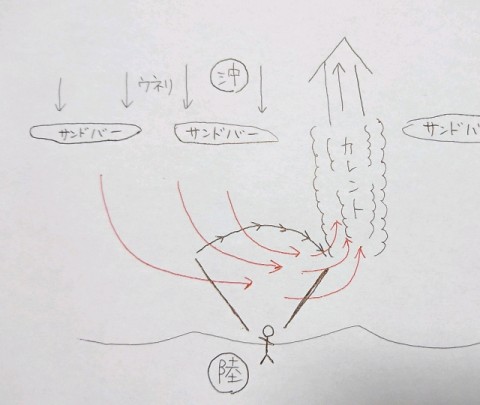 沖
ウネリ
サンドバー
サンドバー
サンドバ
カレント
陸